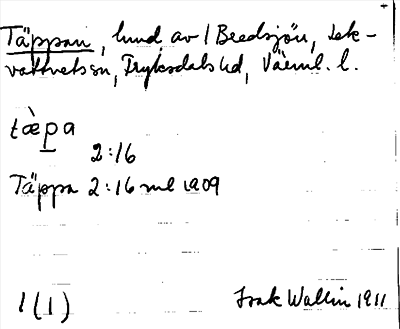 Täppan, lund av / Bredsjön, Lek-
vattnets sn, Fryksdals hd, Värml. l.
tæ̀pa
2:16
Täppa 2:16 ml 1909
1 (1)
Isak Wallin 1911